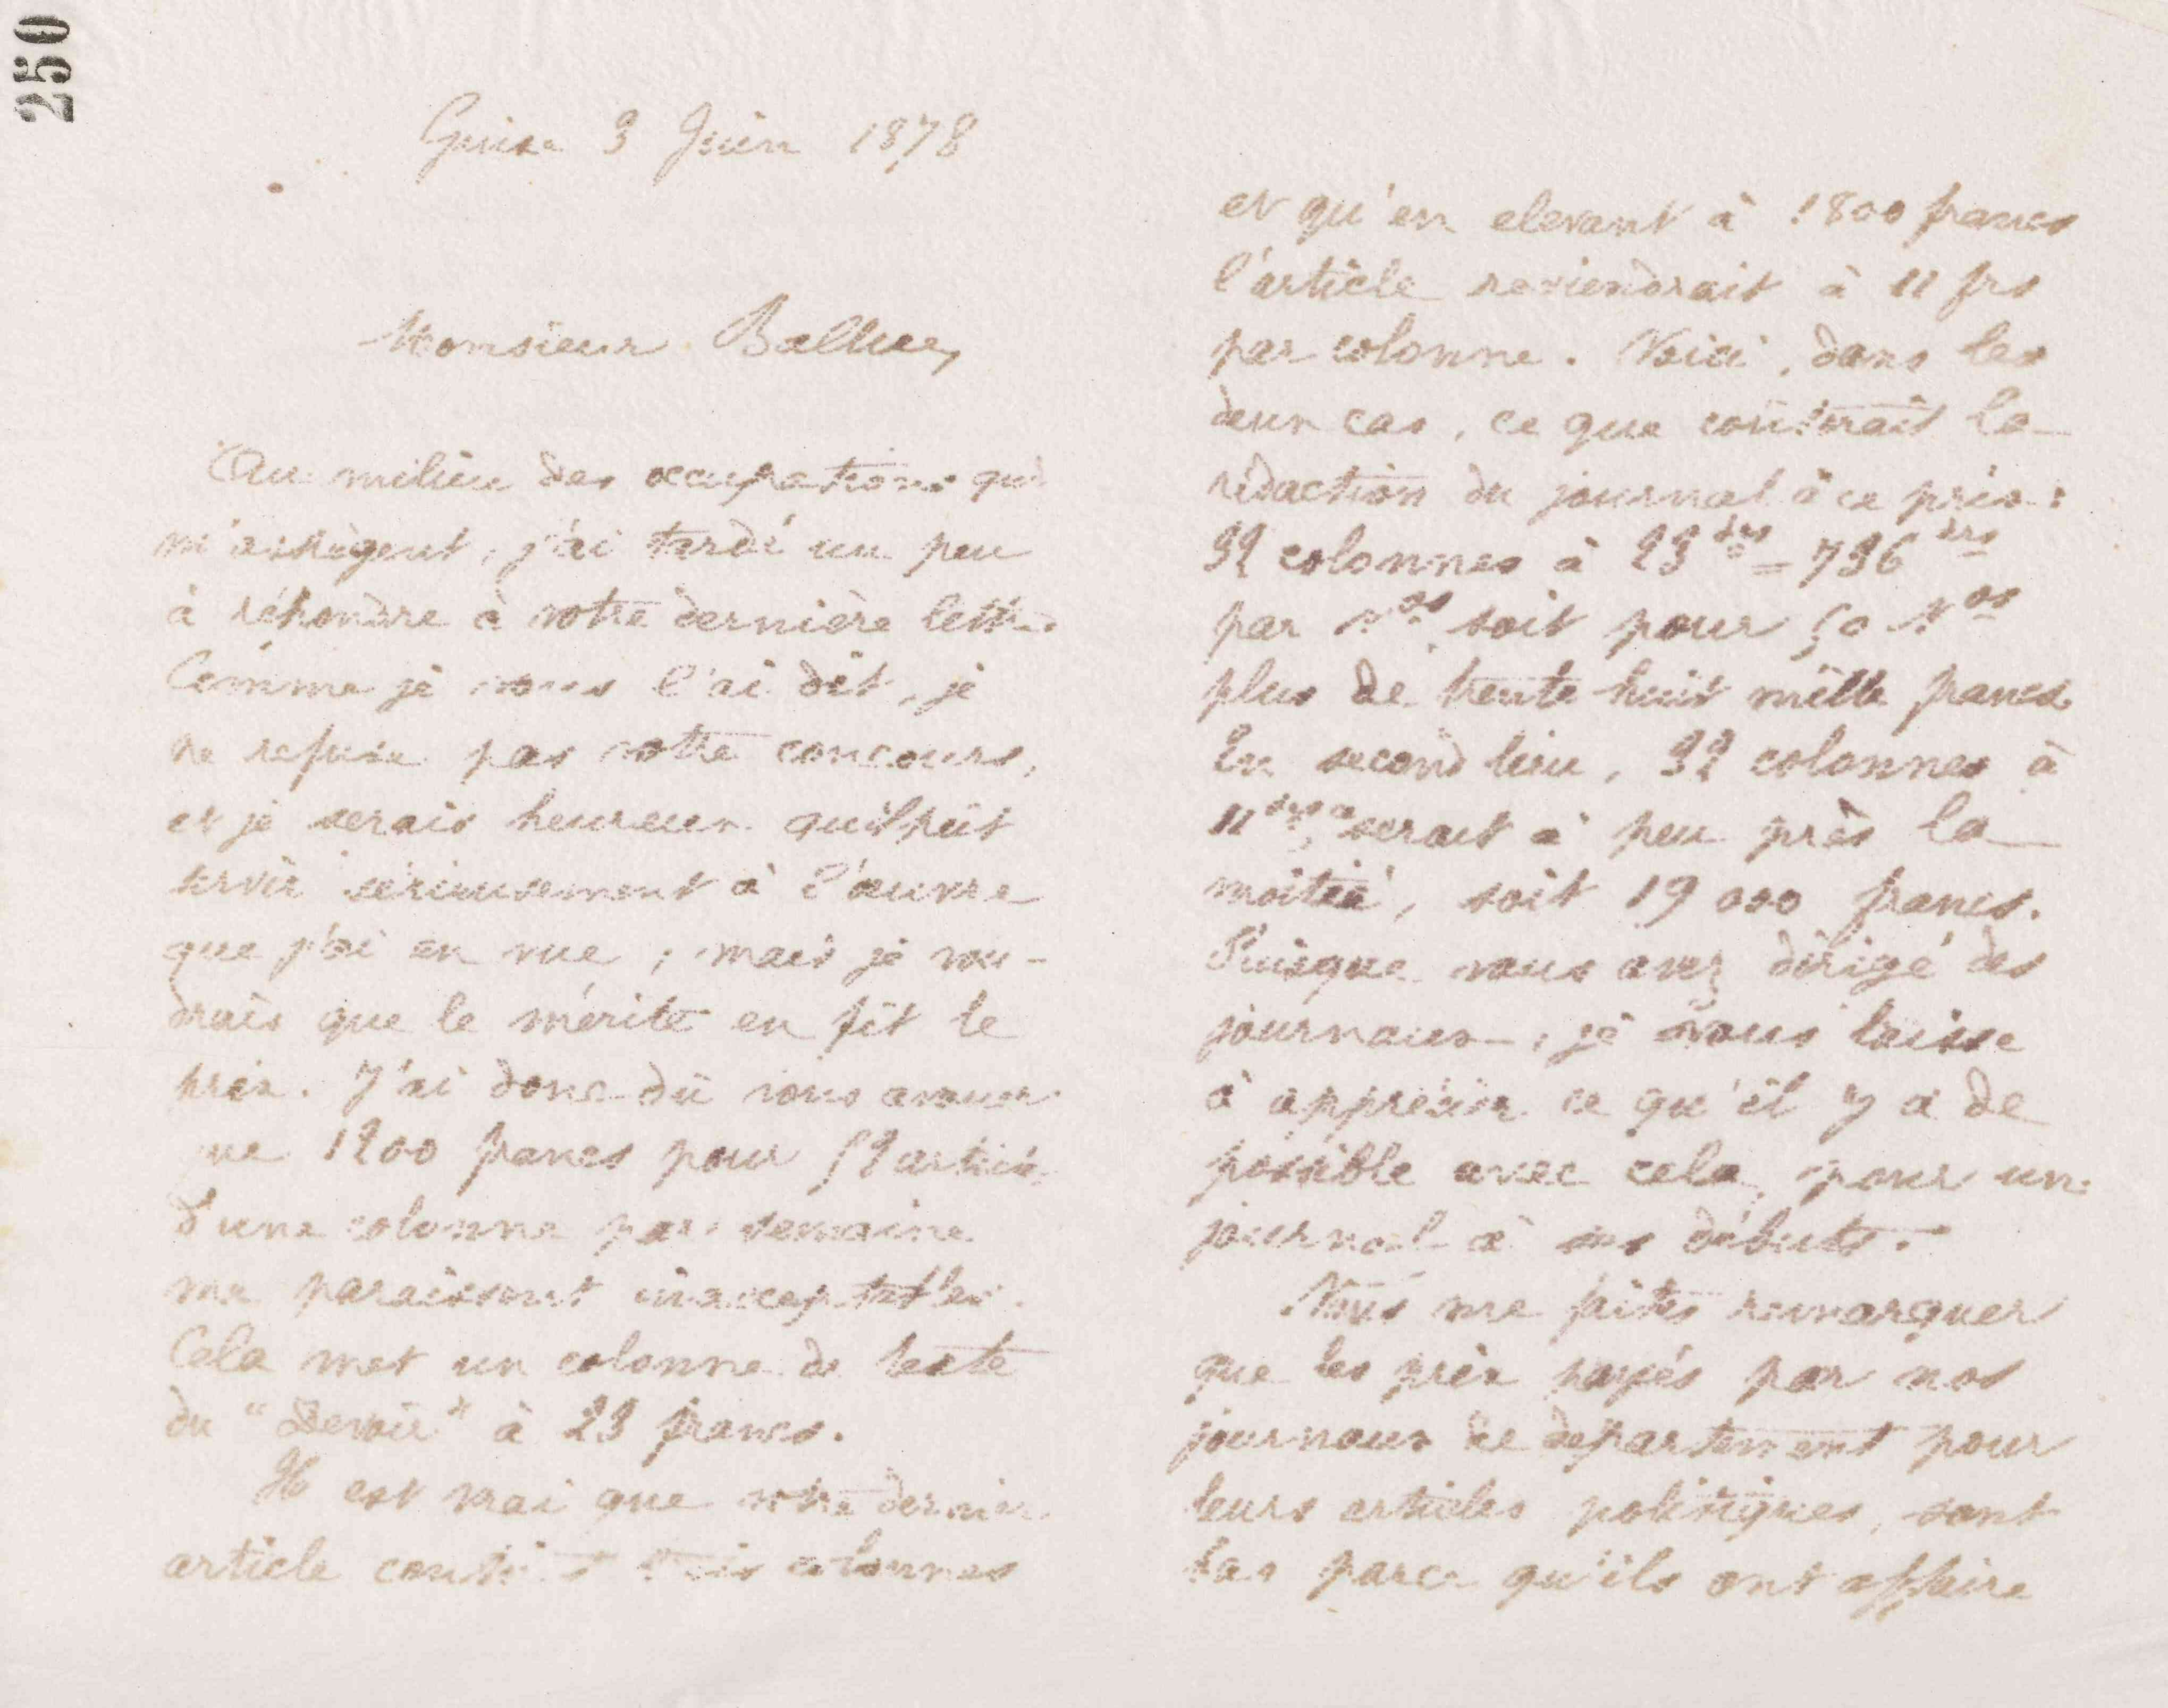 250
Guise 3 Juin 1878
Monsieur Ballue,
Au milieu des occupations qui
m'assiègent, j'ai tardé un peu
à répondre à votre dernière lettre.
Comme je vous l'ai dit, je
ne refuse pas votre concours,
et je serais heureux qu'il pût
servir sérieusement à l'œuvre
que j'ai en vue ; mais je vou-
drais que le mérite en fît le
prix. J'ai donc dû vous avouer
que 1200 francs pour 52 articles
d'une colonne par semaine
me paraissent inacceptables.
Cela met un colonne de texte
du "Devoir" à 23 francs.
Il est vrai que votre dernier
article contient trois colonnes
et qu'en elevant à 1800 francs
l'article reviendrait à 11 frs
par colonne. Voici, dans les
deux cas, ce que coûterait la
rédaction du journal à ce prix :
32 colonnes à 23 frs = 736 frs
par Nos soit pour 50 Nos
plus de trente huit mille francs.
En second lieu, 32 colonnes à
11 frs, serait à peu près la
moitié, soit 19 000 francs.
Puisque vous avez dirigé des
journaux, je vous laisse
à apprécier ce qu'il y a de
possible avec cela, pour un
journal à ses débuts.
Vous me faites remarquer
que les prix payés par nos
journaux de departement pour
leurs articles politiques, sont
bas parce qu'ils ont affaire